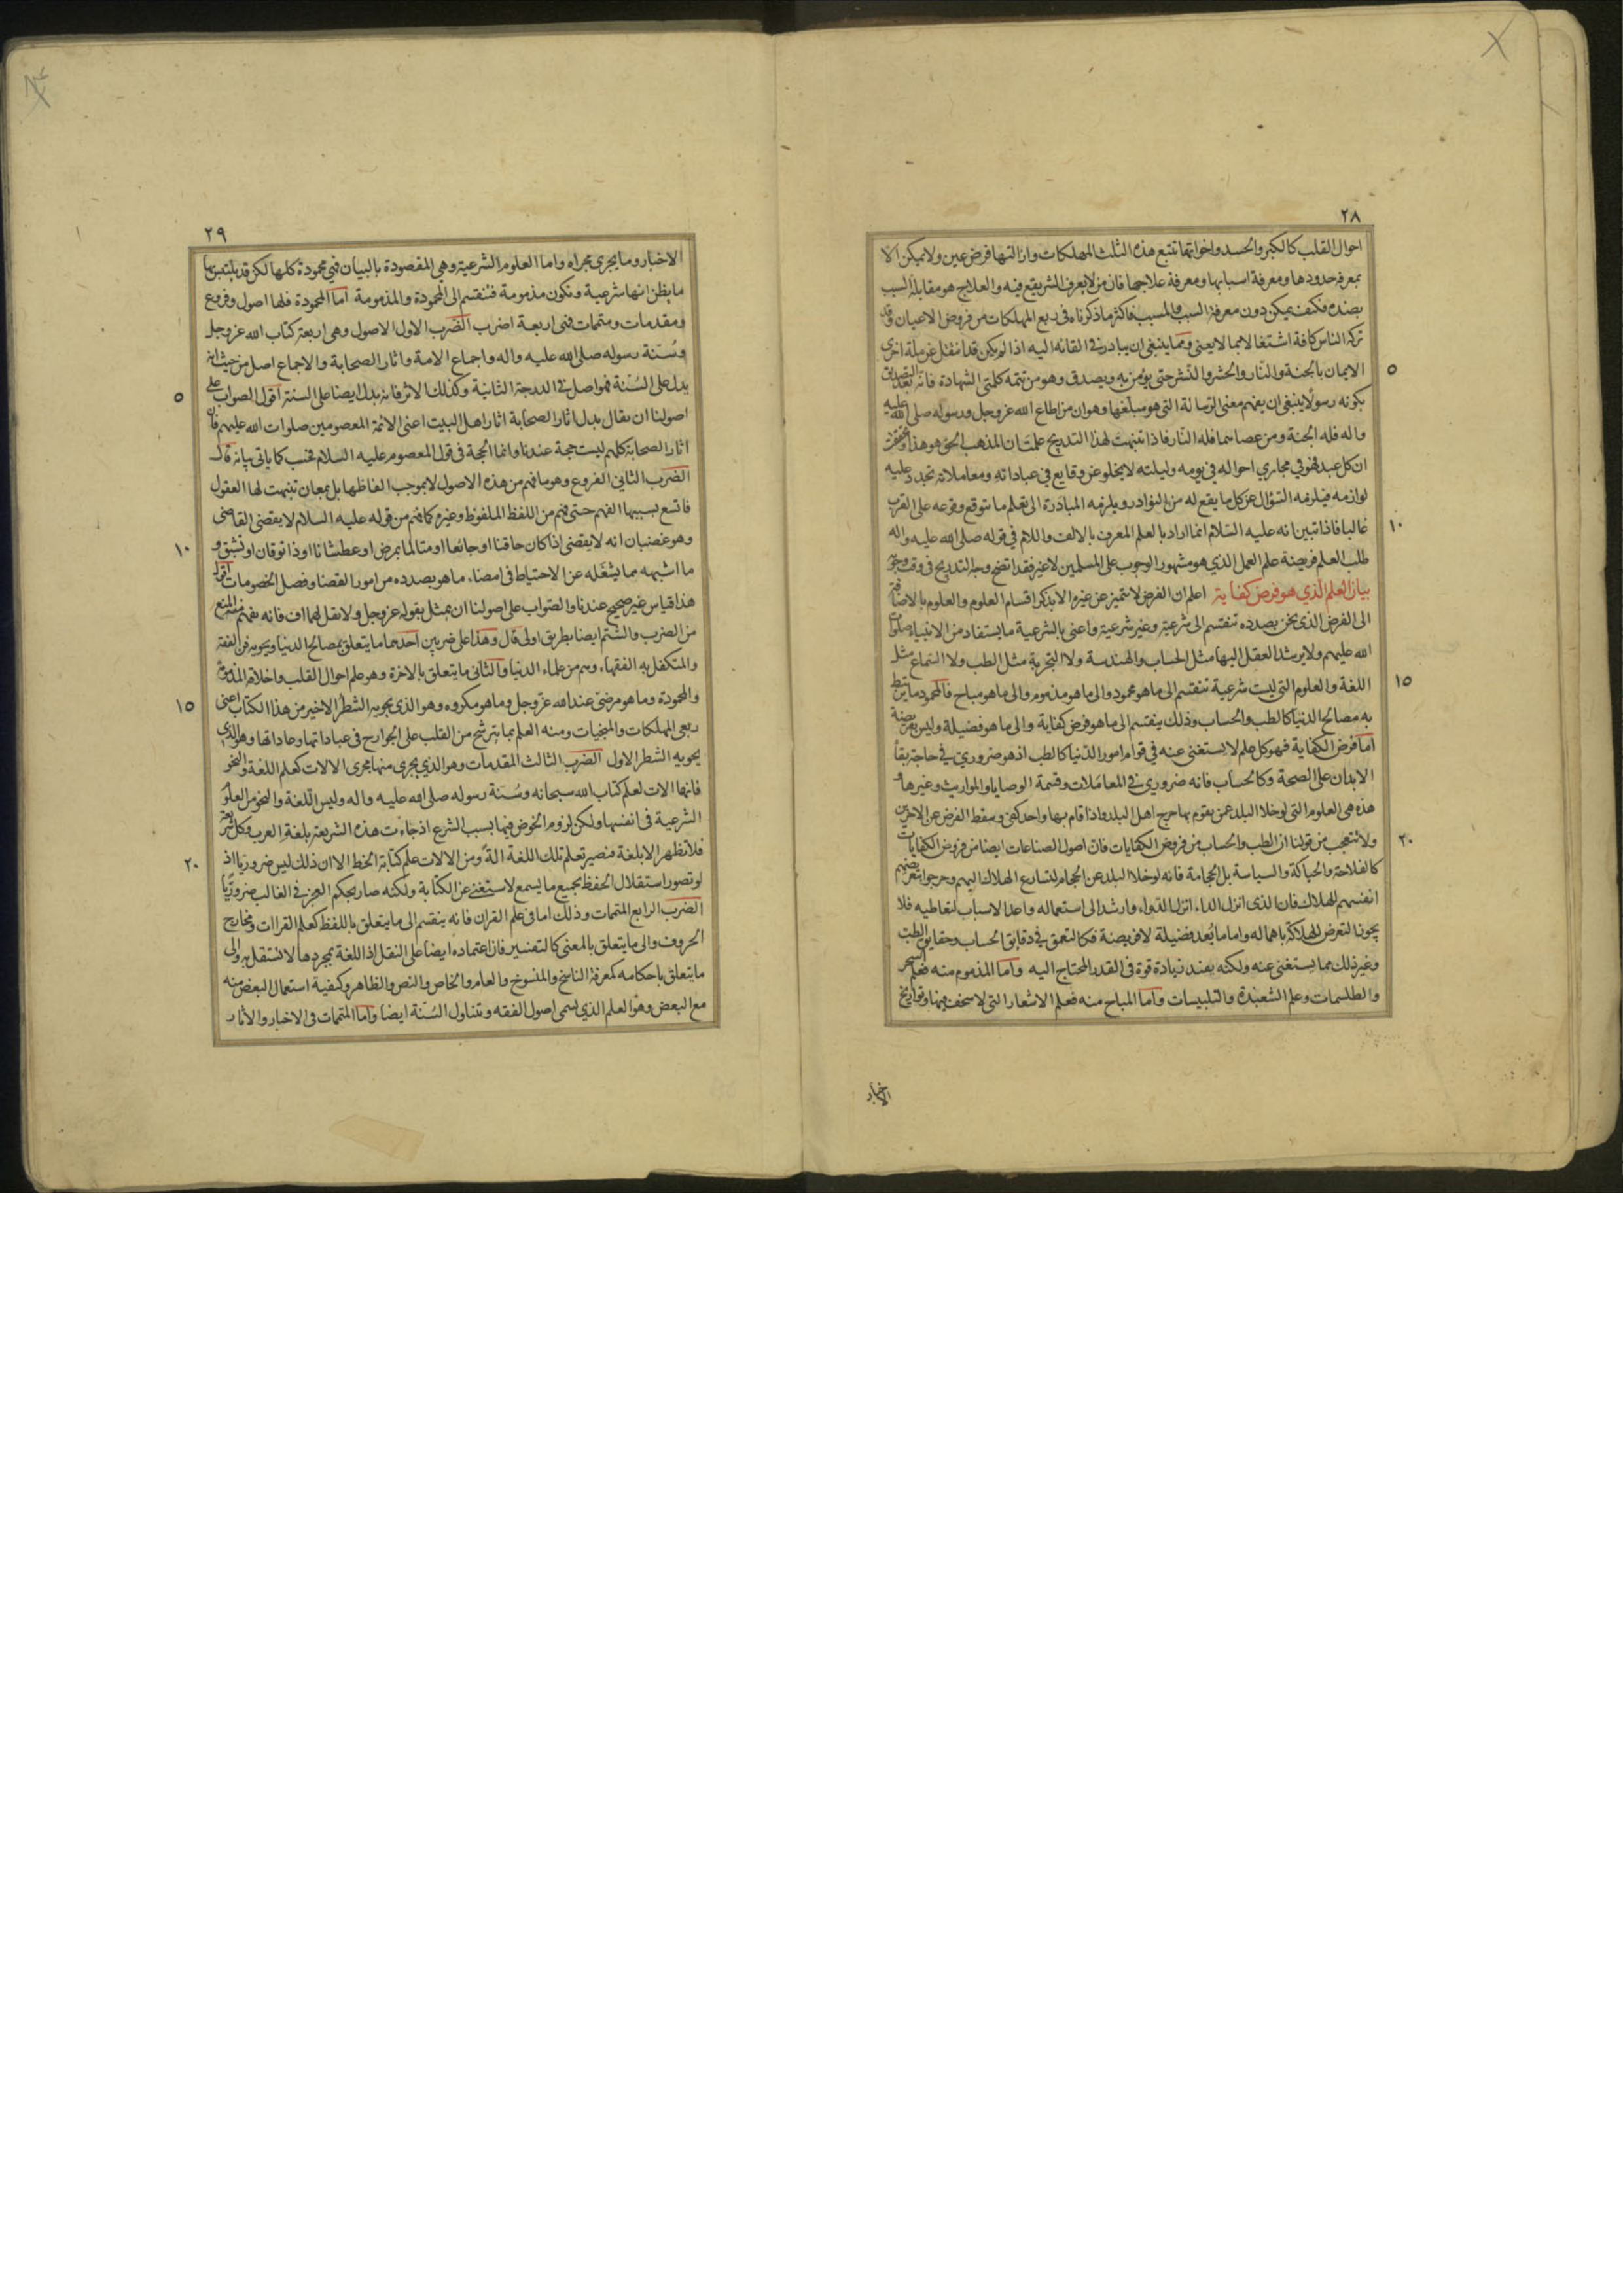 ٢٨
احوال القلب كالكبر والحسد واخواتهما تتبع هذه الثلث المهلكات وازالتها فرض عين ولا يمكن الا
بمعرفة حدودها ومعرفة اسبابها ومعرفة علاجها فان من لا يعرف الشر يقع فيه والعلاج هو مقابلة السبب
بضده فكيف يمكن دون معرفة السبب والمسبب فاكثر ما ذكرناه فى ربع المهلكات من فروض الاعيان وقد
تركه الناس كافة اشتغالا بما لا يعنى ومما ينبغى ان يبادر فى القائه اليه اذا لم يكن قد انتقل عن ملة اخرى
٥
الايمان بالجنة والنار والحشر والنشر حتى يؤمن به ويصدق وهو من تتمة كلمتى الشهادة فانه بعد التصديق
بكونه رسولا ينبغى ان يفهم معنى الرسالة التى هو مبلغها وهو ان من اطاع الله عز وجل ورسوله صلى الله عليه
واله فله الجنة ومن عصاهما فله النار فاذا تنبهت لهذا التدريج علمت ان المذهب الحق هو هذا وتحققت
ان كل عبد فهو في مجاري احواله في يومه وليلته لا يخلو عن وقايع في عباداته ومعاملاته تجدد عليه
لوازمه فيلزمه السؤال عن كل ما يقع له من النوادر ويلزمه المبادرة الى تعلم ما يتوقع وقوعه على القرب
١٠
غالبا فاذا تبين انه عليه السلام انما اراد بالعلم المعرف بالالف واللام في قوله صلى الله عليه واله
طلب العلم فريضة علم العمل الذي هو مشهور الوجوب على المسلمين لا غير فقد اتضح وجه التدريج فى وقت وجوبه
بيان العلم الذي هو فرض كفاية اعلم ان الفرض لا يتميز عن غيره الا بذكر اقسام العلوم والعلوم بالاضافة
الى الفرض الذى نحن بصدده تنقسم الى شرعية وغير شرعية واعنى بالشرعية ما يستفاد من الانبياء صلوات
الله عليهم ولا يرشد العقل اليها مثل الحساب والهندسة ولا التجربة مثل الطب ولا السماع مثل
١٥
اللغة والعلوم التى ليست شرعية تنقسم الى ما هو محمود والى ما هو مذموم والى ما هو مباح فالمحمود ما يرتبط
به مصالح الدنيا كالطب والحساب وذلك ينقسم الى ما هو فرض كفاية والى ما هو فضيلة وليس بفريضة
اما فرض الكفاية فهو كل علم لا يستغنى عنه في قوام امور الدنيا كالطب اذ هو ضروري في حاجة بقاء
الابدان على الصحة وكالحساب فانه ضروري في المعاملات وقسمة الوصايا والمواريث وغيرها و
هذه هى العلوم التى لو خلا البلد عمن يقوم بها حرج اهل البلد واذا قام بها واحد كفى وسقط الفرض عن الاخرين
٢٠
ولا تتعجب من قولنا ان الطب والحساب من فروض الكفايات فان اصول الصناعات ايضا من فروض الكفايات
كالفلاحة والحياكة والسياسة بل الحجامة فانه لو خلا البلد عن الحجام لتسارع الهلاك اليهم وحرجوا بتعريضهم
انفسهم للهلاك فان الذى انزل الداء انزل الدواء وارشد الى استعماله واعد الاسباب لتعاطيه فلا
يجوز التعرض للهلاك باهماله واما ما يعد فضيلة لا فريضة فكالتعمق في دقايق الحساب وحقايق الطب
وغير ذلك مما يستغنى عنه ولكنه يفيد زيادة قوة فى القدر المحتاج اليه واما المذموم منه فعلم السحر
والطلسمات وعلم الشعبذة والتلبيسات واما المباح منه فعلم الاشعار التى لا سخف فيها وتواريخ
الاخبار
٢٩
الاخبار وما يجرى مجراه واما العلوم الشرعية وهى المقصودة بالبيان فهي محمودة كلها لكن قد يلتبس بها
ما يظن انها شرعية وتكون مذمومة فتنقسم الى المحمودة والمذمومة اما المحمودة فلها اصول وفروع
ومقدمات ومتممات فهى اربعة اضرب الضرب الاول الاصول وهى اربعة كتاب الله عز وجل
وسنة رسوله صلى الله عليه واله واجماع الامة واثار الصحابة والاجماع اصل من حيث انه
٥
يدل على السنة فهو اصل في الدرجة الثانية وكذلك الاثر فانه يدل ايضا على السنة اقول الصواب على
اصولنا ان يقال بدل اثار الصحابة اثار اهل البيت اعنى الائمة المعصومين صلوات الله عليهم فان
اثار الصحابة كلهم ليست حجة عندنا وانما الحجة فى قول المعصوم عليه السلام فحسب كما ياتى بيانه قال
الضرب الثانى الفروع وهو ما فهم من هذه الاصول لا بموجب الفاظها بل بمعان تنبهت لها العقول
فاتسع بسببها الفهم حتى فهم من اللفظ الملفوظ وغيره كما فهم من قوله عليه السلام لا يقضى القاضى
١٠
وهو غضبان انه لا يقضى اذا كان حاقنا او جائعا او متالما بمرض او عطشانا او ذا توقان او شبق و
ما اشبهه مما يشغله عن الاحتياط فى امضاء ما هو بصدده من امور القضا وفصل الخصومات اقول
هذا قياس غير صحيح عندنا والصواب على اصولنا ان يمثل بقوله عز وجل ولا تقل لهما اف فانه يفهم منه المنع
من الضرب والشتم ايضا بطريق اولى قال وهذا على ضربين احدهما ما يتعلق بمصالح الدنيا ويحويه فن الفقه
والمتكفل به الفقهاء وهم من علماء الدنيا والثانى ما يتعلق بالاخرة وهو علم احوال القلب واخلاقه المذمومة
١٥
والمحمودة وما هو مرضى عند الله عز وجل وما هو مكروه وهو الذى يحويه الشطر الاخير من هذا الكتاب اعنى
ربعى المهلكات والمنجيات ومنه العلم بما يترشح من القلب على الجوارح فى عباداتها وعاداتها وهو الذى
يحويه الشطر الاول الضرب الثالث المقدمات وهو الذي يجرى منها مجرى الالات كعلم اللغة والنحو
فانها الات لعلم كتاب الله سبحانه وسنة رسوله صلى الله عليه واله وليس اللغة والنحو من العلوم
الشرعية فى انفسها ولكن لزوم الخوض فيها بسبب الشرع اذ جاءت هذه الشريعة بلغة العرب وكل شريعة
٢٠
فلا تظهر الا بلغة فيصير تعلم تلك اللغة الة ومن الالات علم كتابة الخط الا ان ذلك ليس ضروريا اذ
لو تصور استقلال الحفظ بجميع ما يسمع لاستغنى عن الكتابة ولكنه صار بحكم العجز في الغالب ضروريا
الضرب الرابع المتممات وذلك اما فى علم القران فانه ينقسم الى ما يتعلق باللفظ كعلم القراات ومخارج
الحروف والى ما يتعلق بالمعنى كالتفسير فان اعتماده ايضا على النقل اذ اللغة بمجردها لا تستقل به والى
ما يتعلق باحكامه كمعرفة الناسخ والمنسوخ والعام والخاص والنص والظاهر وكيفية استعمال البعض منه
مع البعض وهو العلم الذي يسمى اصول الفقه ويتناول السنة ايضا واما المتممات فى الاخبار والاثار